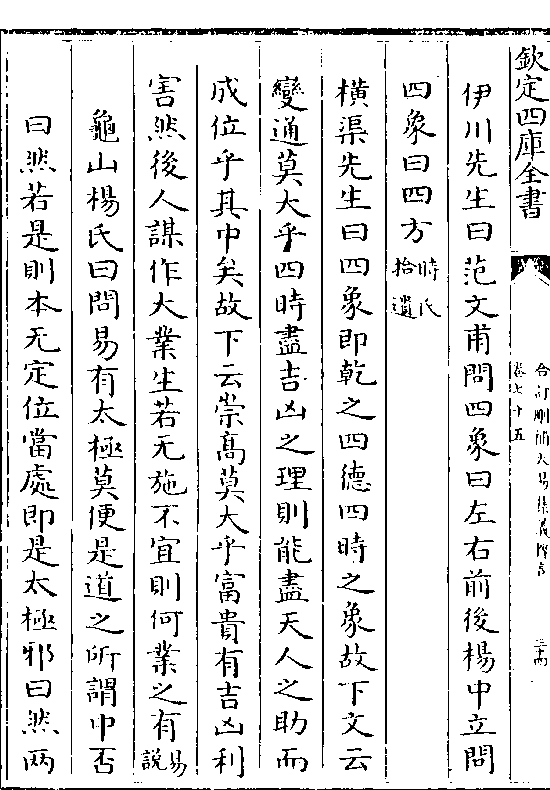 欽定四庫全書
合訂刪補大易集義粹言
卷七十五
三十四
伊川先生曰范文甫問四象曰左右前後楊中立問
四象曰四方時氏拾遺
橫渠先生曰四象即乾之四德四時之象故下文云
變通莫大乎四時盡吉凶之理則能盡天人之助而
成位乎其中矣故下云崇高莫大乎富貴有吉凶利
害然後人謀作大業生若无施不宜則何業之有易說
龜山楊氏曰問易有太極莫便是道之所謂中否
曰然若是則本无定位當處即是太極邪曰然两